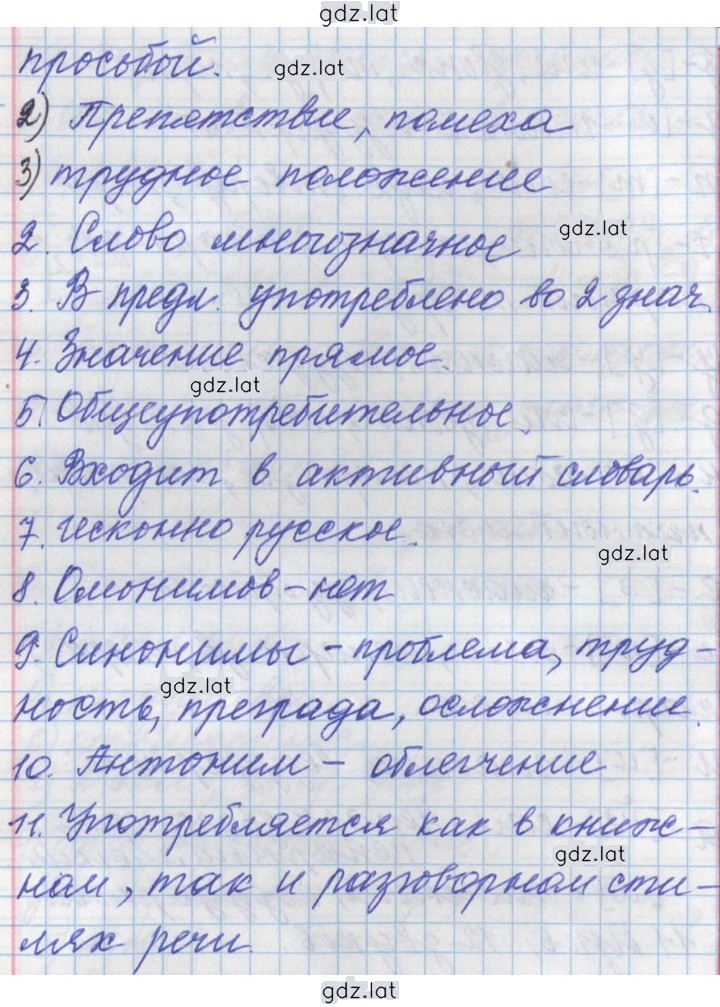 gdz.lat
просьбой.
gdz.lat
2) Препятствие, помеха
3) трудное положение
gdz.lat
2. Слово многозначное
3. В предл. употреблено во 2 знач.
4. Значение прямое.
gdz.lat
5. Общеупотребительное.
6. Входит в активный словарь.
7. Исконно русское.
gdz.lat
8. Омонимов – нет
9. Синонимы – проблема, труд-
gdz.lat
ность, преграда, осложнение.
10. Антоним – облегчение
11. Употребляется как в книж-
gdz.lat
ном, так и разговорном сти-
лях речи.
gdz.lat